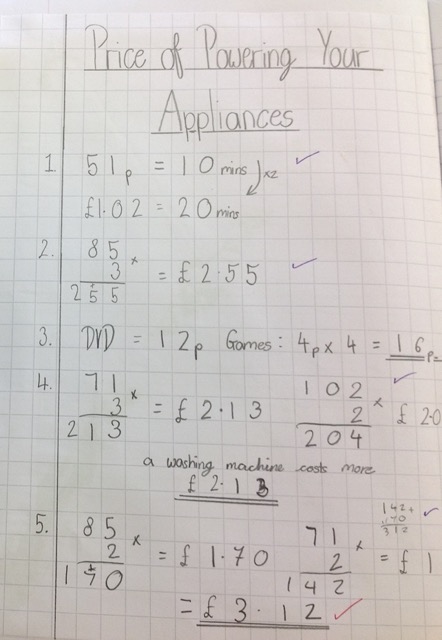 Price of Powering Your
Appliances
1. 51p = 10 mins ×2
£1.02 = 20 mins
2. 85
3 × = £2.55
255
3. DVD = 12p Games: 4p × 4 = 16p
4. 71 102
3 × = £2.13 2 × £2.0
213 204
a washing machine costs more
£2.13
5. 85 71 142+
2 × = £1.70 2 × 170
170 142 312
= £1
= £3.12